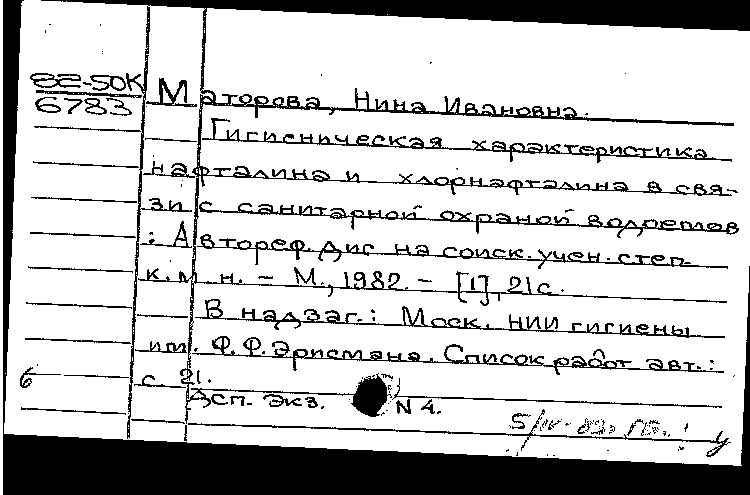 82-50К
6783
Маторова, Нина Ивановна.
Гигиеническая характеристика
нафталина и хлорнафталина в свя-
зи с санитарной охраной водоемов
: Автореф. дис на соиск. учен. степ.
к. м. н. – М., 1982. – [1], 21 с.
В надзаг.: Моск. НИИ гигиены
им. Ф. Ф. Эрисмана. Список работ авт.:
с. 21.
6
Дсп. Экз. N 4.
5/IV-83.